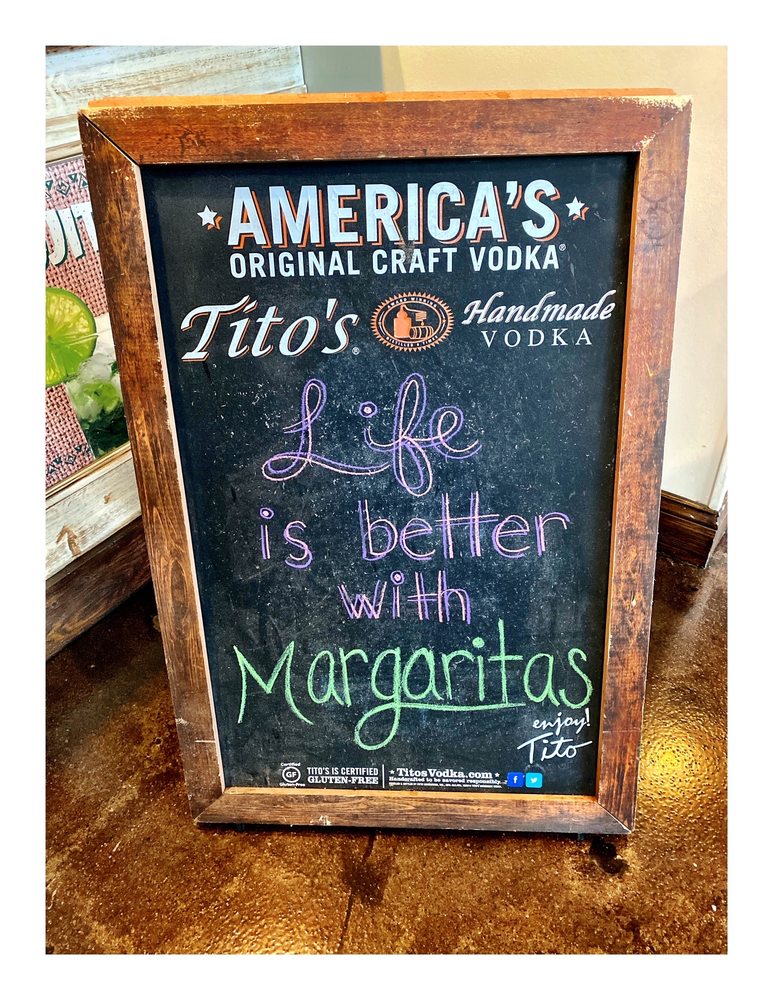 AMERICA'S
ORIGINAL CRAFT VODKA®
Tito's® Handmade
VODKA
AWARD WINNING
Life
is better
with
Margaritas
enjoy!
Tito
Certified
GF
Gluten-Free
TITO'S IS CERTIFIED
GLUTEN-FREE
TitosVodka.com
Handcrafted to be savored responsibly.